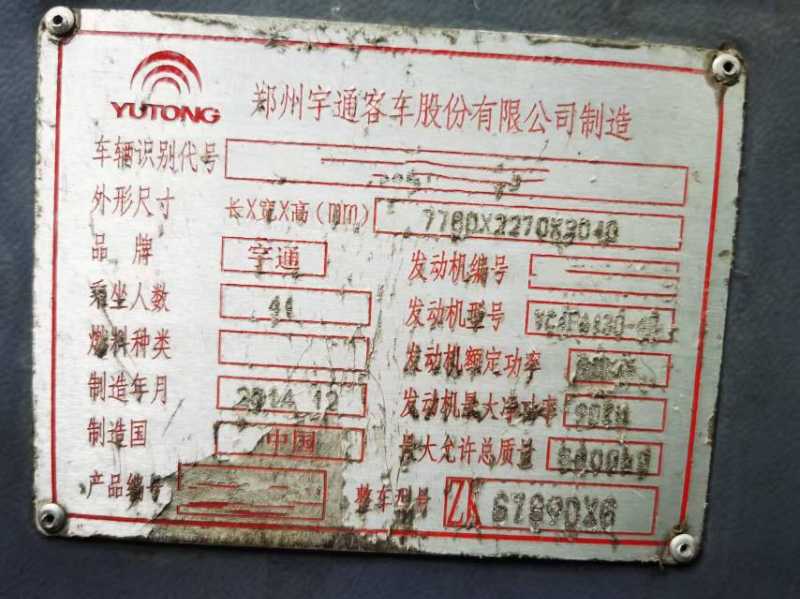 YUTONG 郑州宇通客车股份有限公司制造
车辆识别代号
外形尺寸 长X宽X高(mm) 7760X2270X3040
品牌 宇通 发动机编号
乘坐人数 41 发动机型号
燃料种类 发动机额定功率
制造年月 2014 12 发动机最大净功率 90kW
制造国 中国 最大允许总质量
产品编号 整车型号 ZK